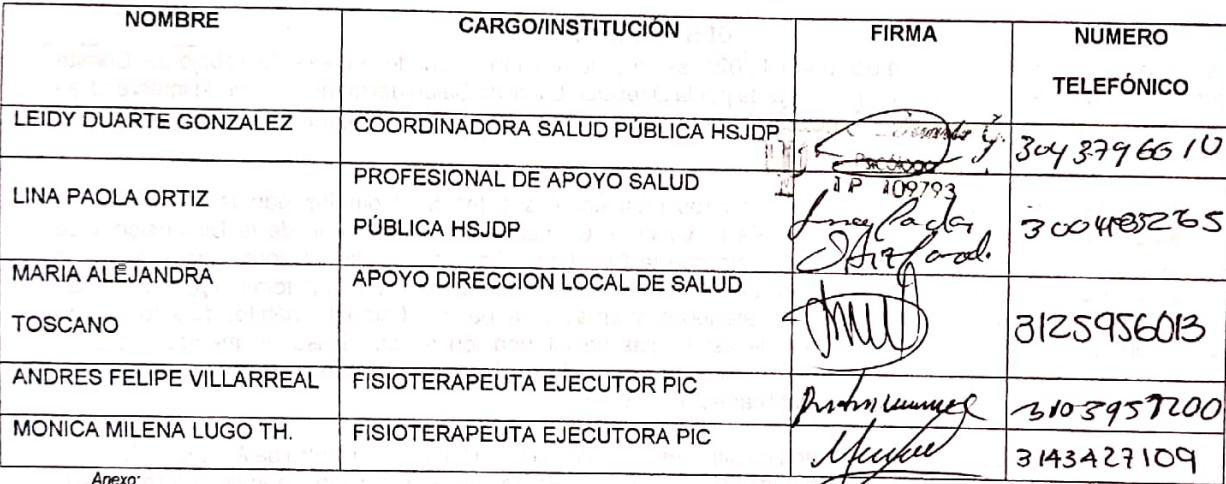 NOMBRE CARGO/INSTITUCIÓN FIRMA NUMERO
TELEFÓNICO
LEIDY DUARTE GONZALEZ COORDINADORA SALUD PÚBLICA HSJDP 3043796610
LINA PAOLA ORTIZ PROFESIONAL DE APOYO SALUD
PÚBLICA HSJDP 3004832265
109793
MARIA ALEJANDRA APOYO DIRECCION LOCAL DE SALUD
TOSCANO 3125956013
ANDRES FELIPE VILLARREAL FISIOTERAPEUTA EJECUTOR PIC
MONICA MILENA LUGO TH. FISIOTERAPEUTA EJECUTORA PIC 3143427109
Anexo: